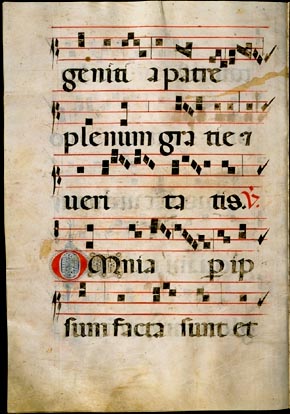 geniti a patre
plenum gratie ⁊
ueri ta tis. ℣.
Omnia p̲ ip
sum facta sunt et